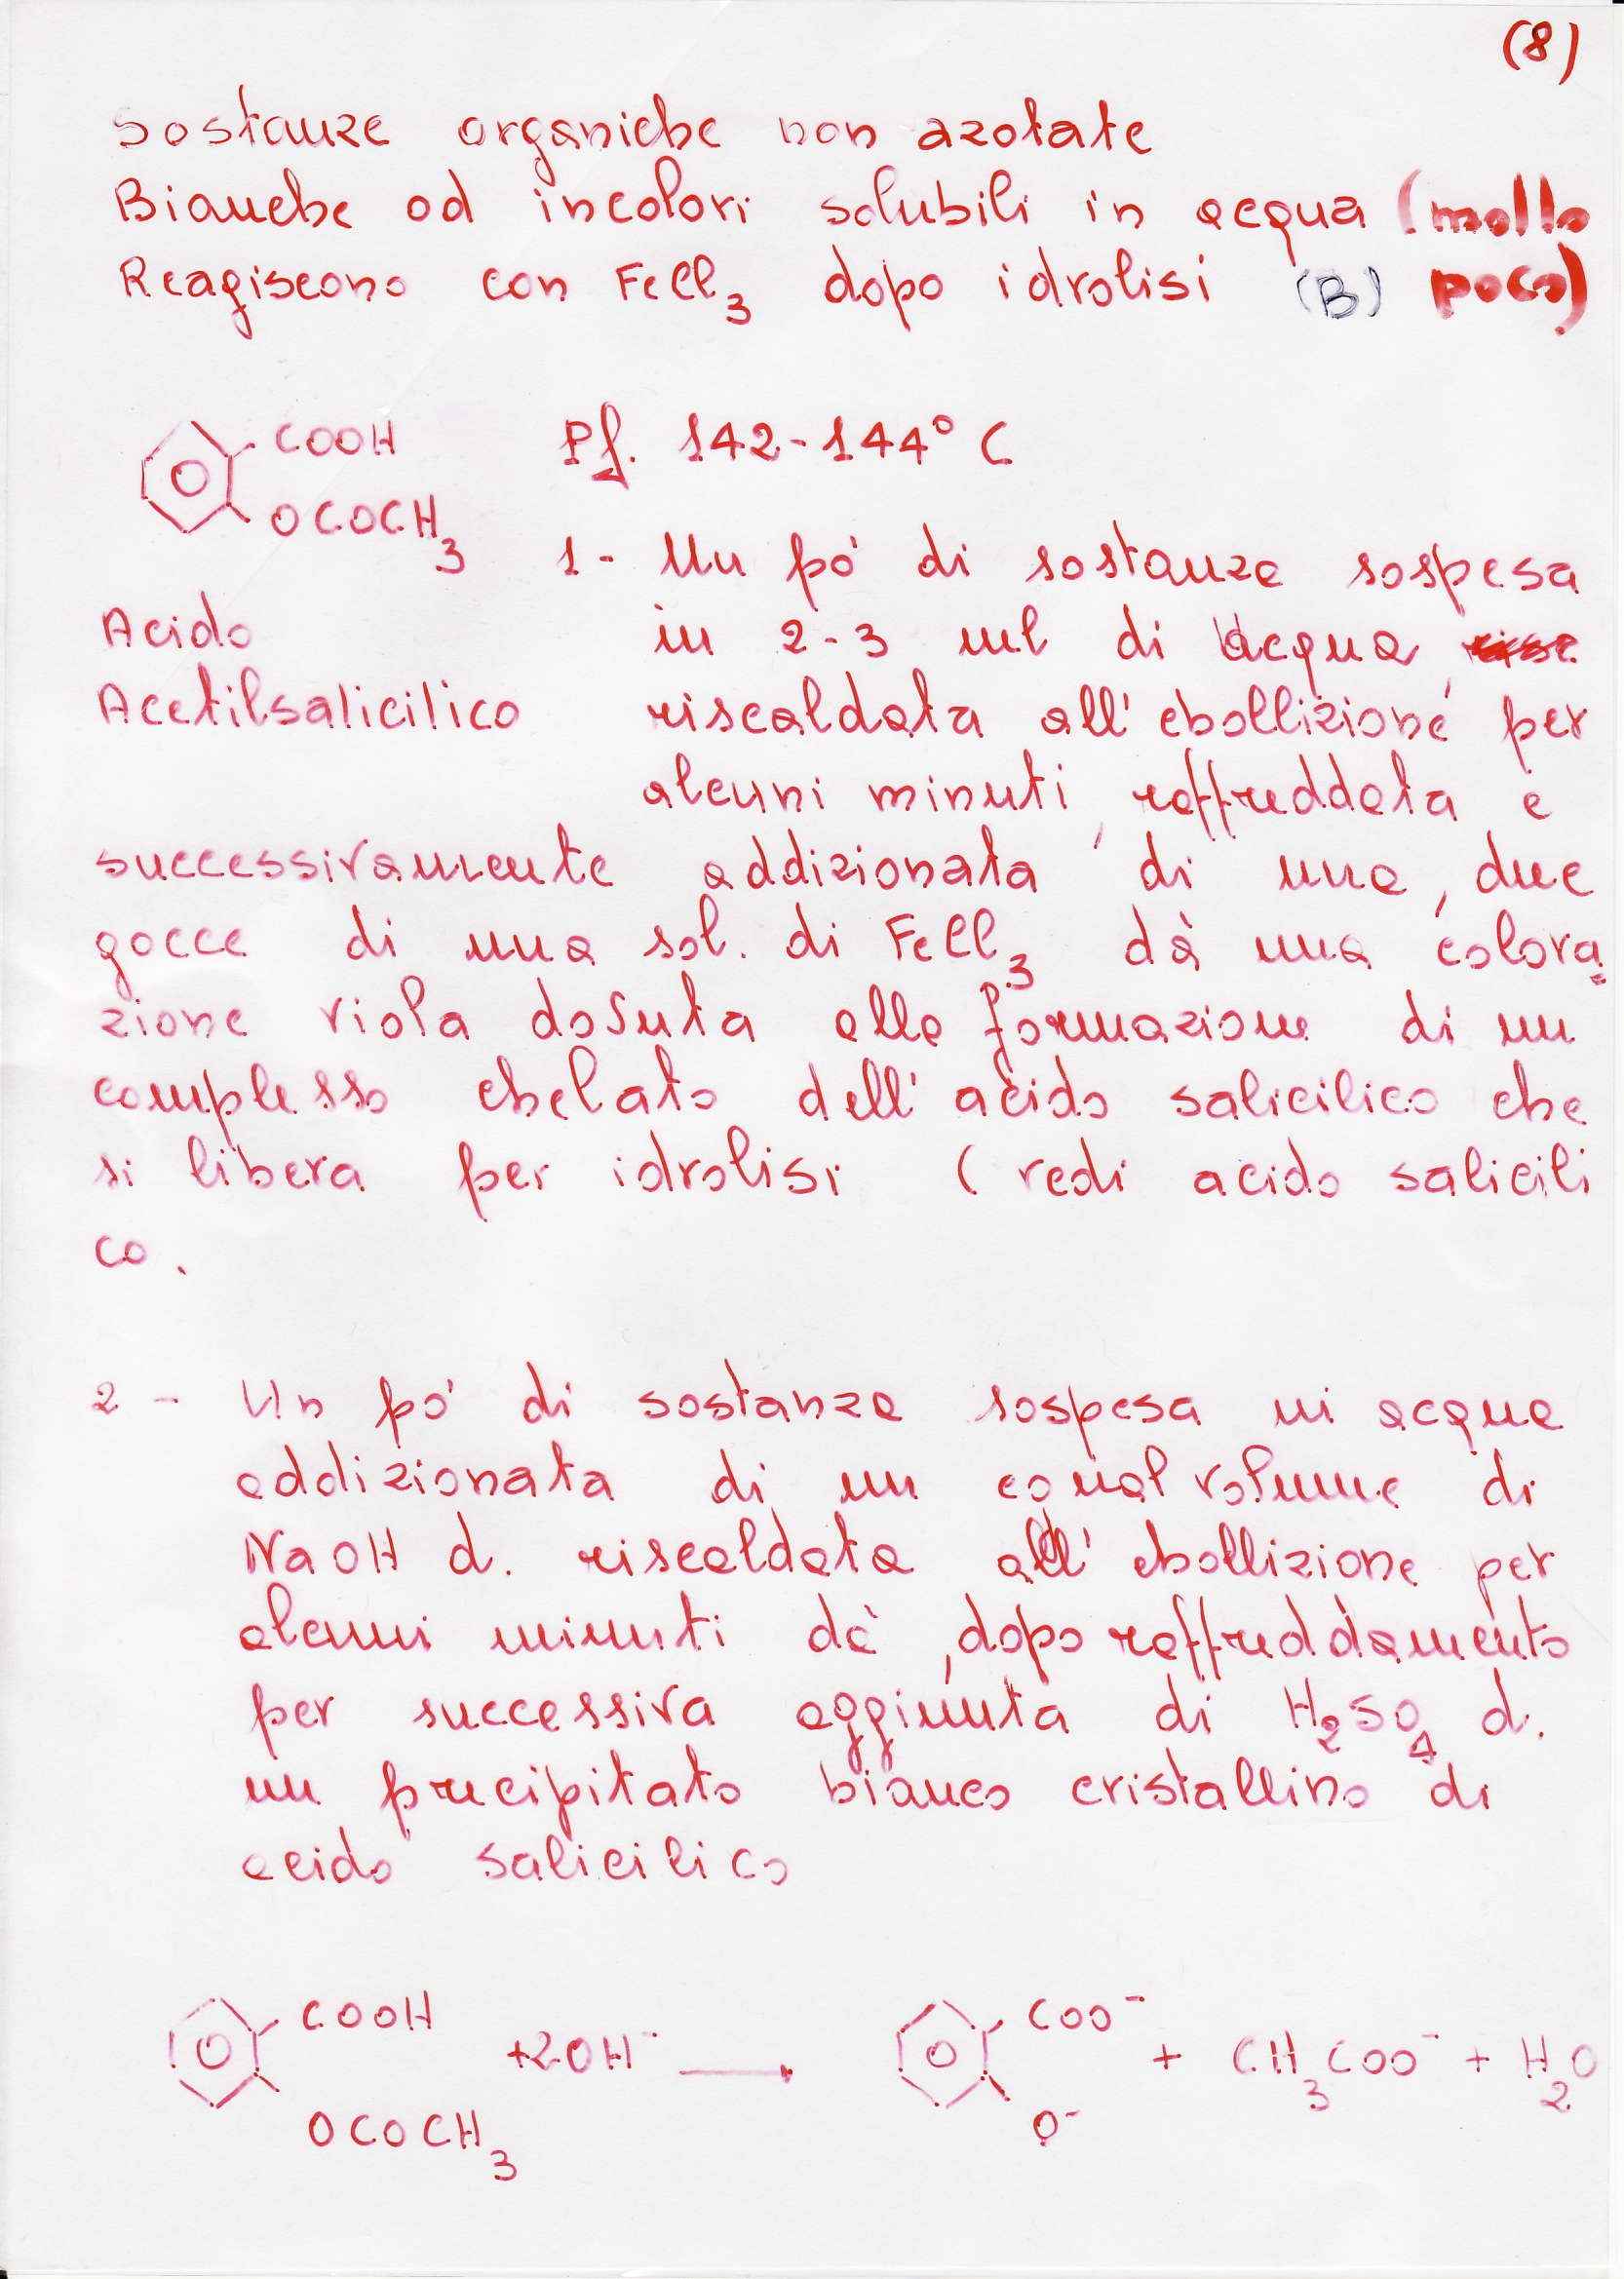 (8)
Sostanze organiche non azotate
Bianche od incolori solubili in acqua (molto
Reagiscono con FeCl3 dopo idrolisi (B) poco)
COOH Pf. 142-144° C
OCOCH3
1- Un pò di sostanza sospesa
Acido in 2-3 ml di acqua,
Acetilsalicilico riscaldata all'ebollizione per
alcuni minuti, raffreddata e
successivamente addizionata di una, due
gocce di una sol. di FeCl3 dà una colora=
zione viola dovuta alla formazione di un
complesso chelato dell'acido salicilico che
si libera per idrolisi (vedi acido salicili
co.
2- Un pò di sostanza sospesa in acqua
addizionata di un egual volume di
NaOH d. riscaldata all'ebollizione per
alcuni minuti dà, dopo raffreddamento
per successiva aggiunta di H2SO4 d.
un precipitato bianco cristallino di
acido salicilico
COOH +2OH- → COO- + CH3COO- + H2O
OCOCH3 O-